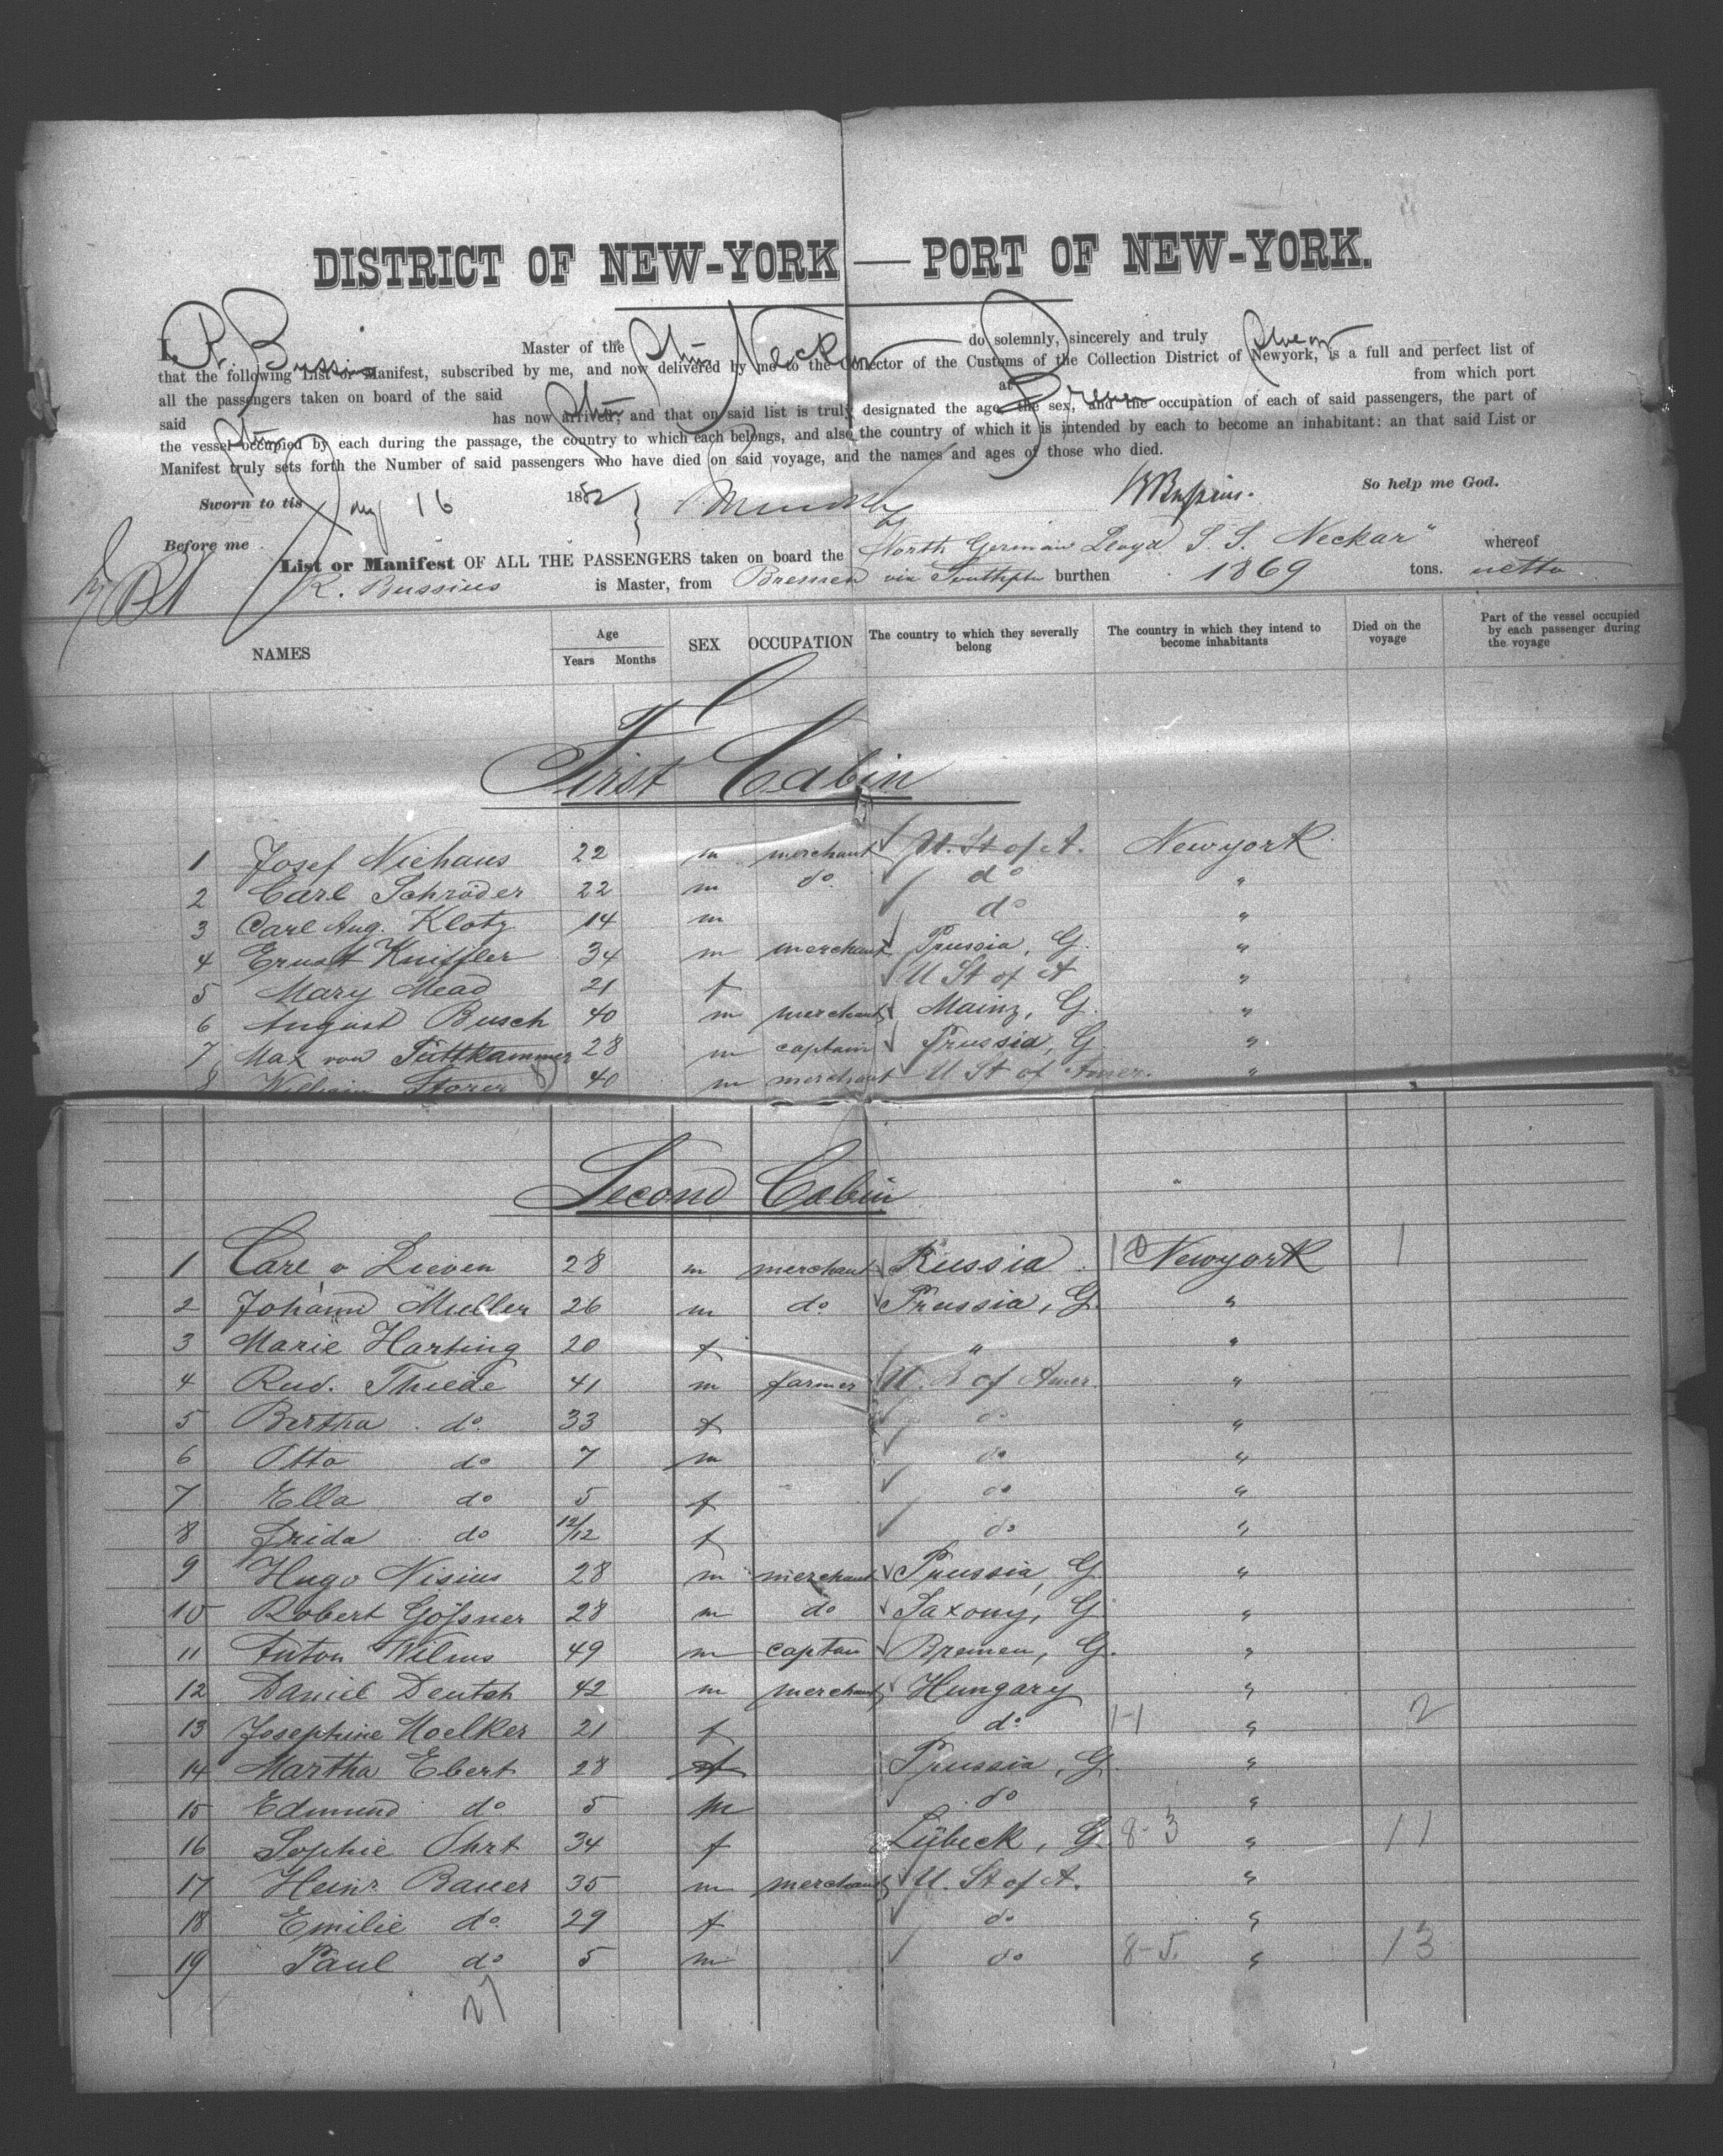 DISTRICT OF NEW-YORK — PORT OF NEW-YORK.
I, R. Bussius Master of the Str. Neckar do solemnly, sincerely and truly swear
that the following List or Manifest, subscribed by me, and now delivered by me to the Collector of the Customs of the Collection District of Newyork, is a full and perfect list of
all the passengers taken on board of the said Str. at Bremen from which port
said Str. has now arrived; and that on said list is truly designated the age, the sex, and the occupation of each of said passengers, the part of
the vessel occupied by each during the passage, the country to which each belongs, and also the country of which it is intended by each to become an inhabitant: an that said List or
Manifest truly sets forth the Number of said passengers who have died on said voyage, and the names and ages of those who died.
Sworn to tis 16 1882 RBussius. So help me God.
Before me
List or Manifest OF ALL THE PASSENGERS taken on board the North German Lloyd S. S. Neckar" whereof
R. Bussius is Master, from Bremen via Southptn burthen 1869 tons. netto
NAMES Age Years Months SEX OCCUPATION The country to which they severally belong The country in which they intend to become inhabitants Died on the voyage Part of the vessel occupied by each passenger during the voyage
First Cabin
1 Josef Niehaus 22 m merchant U. St of A. Newyork
2 Carl Schröder 22 m do do "
3 Carl Aug. Klotz 14 m do "
4 Ernst Kniffler 34 m merchant Prussia, G. "
5 Mary Mead 21 f U St of A "
6 August Busch 40 m merchant Mainz, G. "
7 Max von Puttkammer 28 m captain Prussia, G "
8 William Storer 40 m merchant U St of Amer. "
Second Cabin "
1 Carl v Lieven 28 m merchant Russia 10 Newyork 1
2 Johann Muller 26 m do Prussia, G. "
3 Marie Harting 20 f " "
4 Rud. Thiede 41 m farmer U. S of Amer. "
5 Bertha do 33 f do "
6 Otto do 7 m do "
7 Ella do 5 f do "
8 Frida do 12/12 f do "
9 Hugo Nisius 28 m merchant Prussia, G "
10 Robert Gößner 28 m do Saxony, G "
11 Anton Wilms 49 m captain Bremen, G. "
12 Daniel Deutsh 42 m merchant Hungary "
13 Josephine Moelker 21 f do 1-1 " 2
14 Martha Ebert 28 f Prussia, G. "
15 Edmund do 5 m do "
16 Sophie Ohrt 34 f Lübeck, G. 8-3 " 11
17 Heinr. Bauer 35 m merchant U. St of A. "
18 Emilie do 29 f do "
19 Paul do 5 m do 8-5. " 13
27